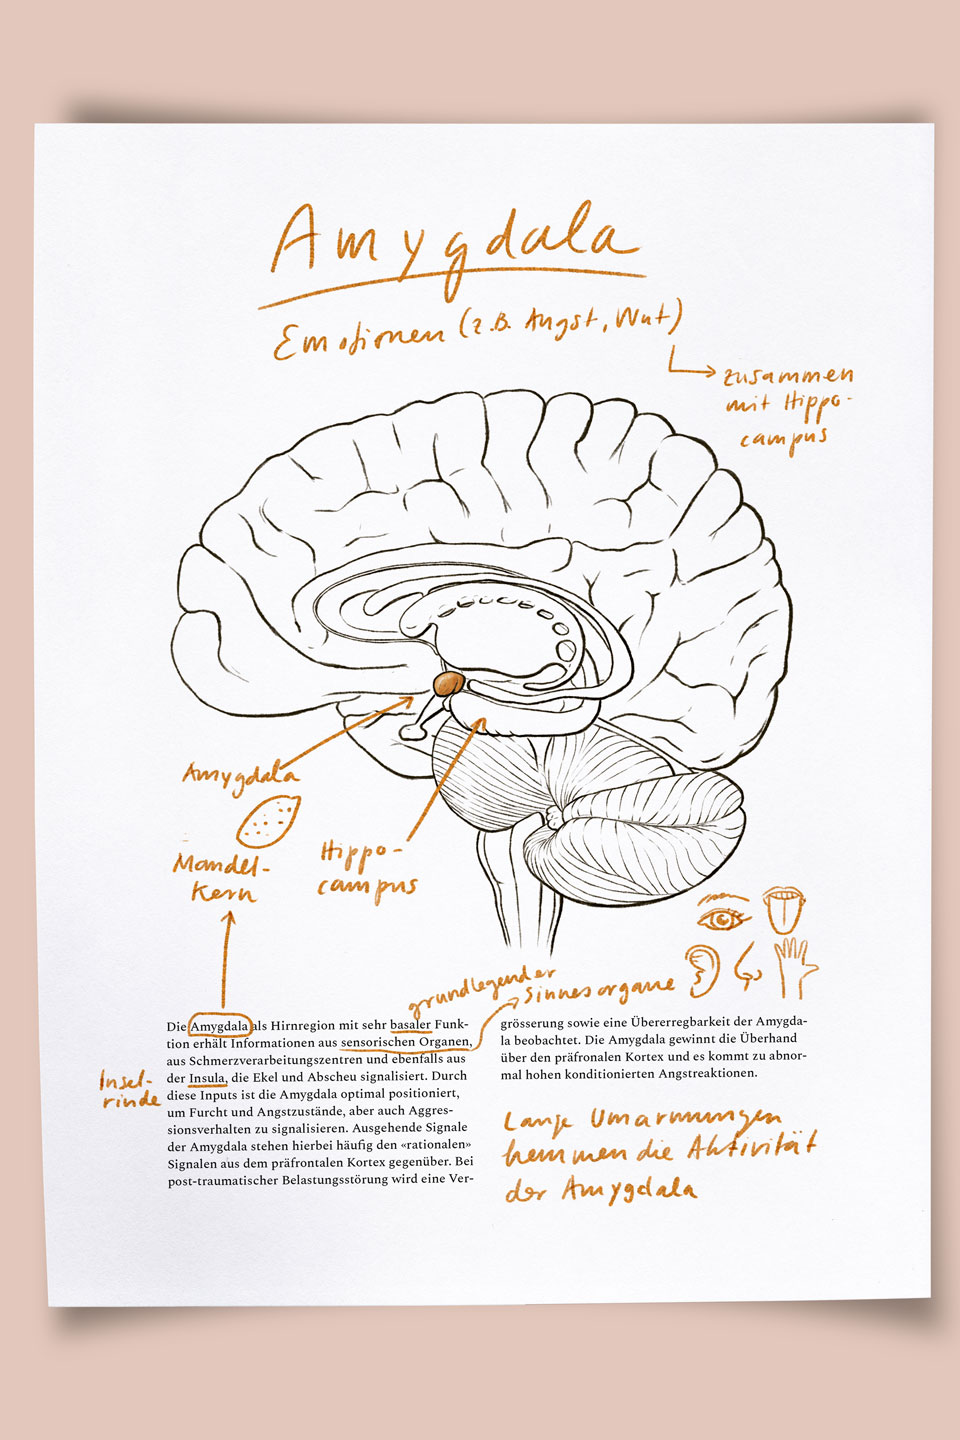 Amygdala
Emotionen (z.B. Angst, Wut)
zusammen
mit Hippo-
campus
Amygdala
Mandel-
Kern
Hippo-
campus
grundlegender
Sinnesorgane
Die Amygdala als Hirnregion mit sehr basaler Funk-
tion erhält Informationen aus sensorischen Organen,
aus Schmerzverarbeitungszentren und ebenfalls aus
der Insula, die Ekel und Abscheu signalisiert. Durch
diese Inputs ist die Amygdala optimal positioniert,
um Furcht und Angstzustände, aber auch Aggres-
sionsverhalten zu signalisieren. Ausgehende Signale
der Amygdala stehen hierbei häufig den «rationalen»
Signalen aus dem präfrontalen Kortex gegenüber. Bei
post-traumatischer Belastungsstörung wird eine Ver-
Insel-
rinde
grösserung sowie eine Übererregbarkeit der Amygda-
la beobachtet. Die Amygdala gewinnt die Überhand
über den präfronalen Kortex und es kommt zu abnor-
mal hohen konditionierten Angstreaktionen.
Lange Umarmungen
hemmen die Aktivität
der Amygdala